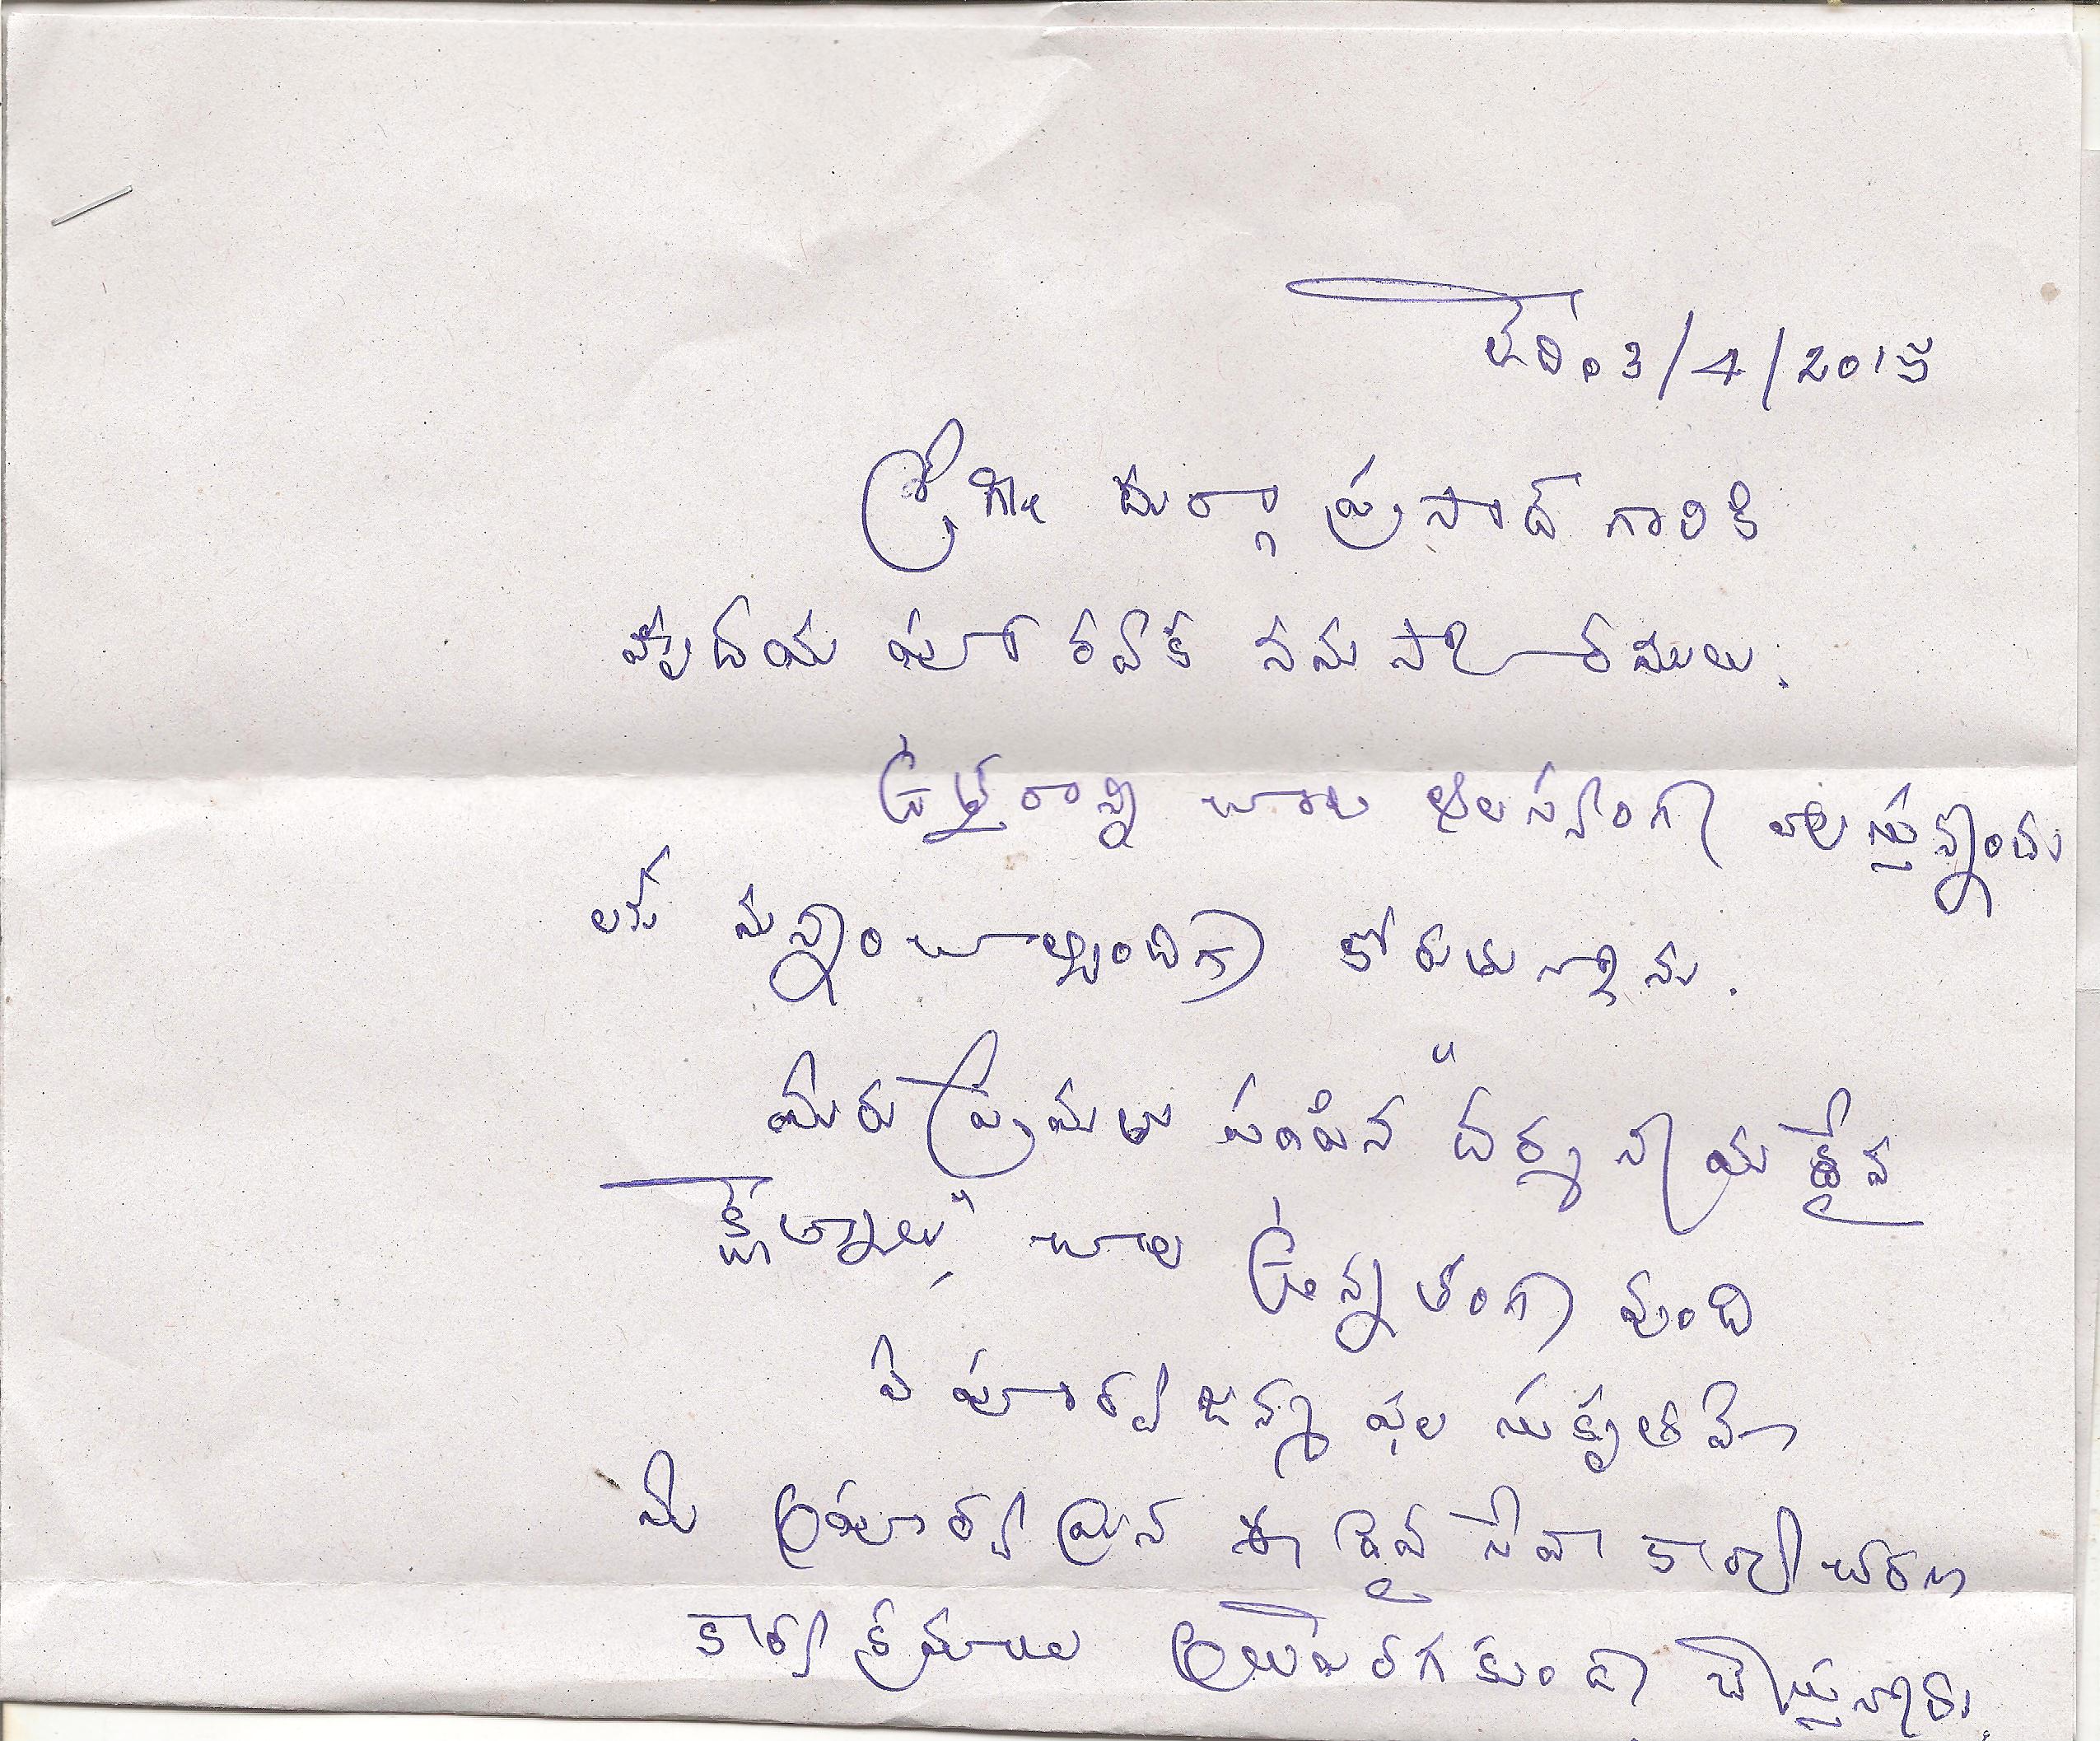 తేది 03/4/2015
శ్రీ గబ్బిట దుర్గా ప్రసాద్ గారికి
హృదయ పూర్వక నమస్కారములు.
ఉత్తరాన్ని చాల ఆలస్యంగా రాస్తున్నందు
లకు మన్నించాల్సిందిగా కోరుతున్నాను.
మీరు ప్రేమతో పంపిన "దర్శనీయ దైవ
క్షేత్రాలు" చాల ఉన్నతంగా వుంది
ఏ పూర్వజన్మ ఫల సుకృతమో
మీ అపూర్వమైన ఈ దైవ సేవా కార్యాచరణ
కార్యక్రమాలు అలుపెరగకుండా చేస్తున్నారు.